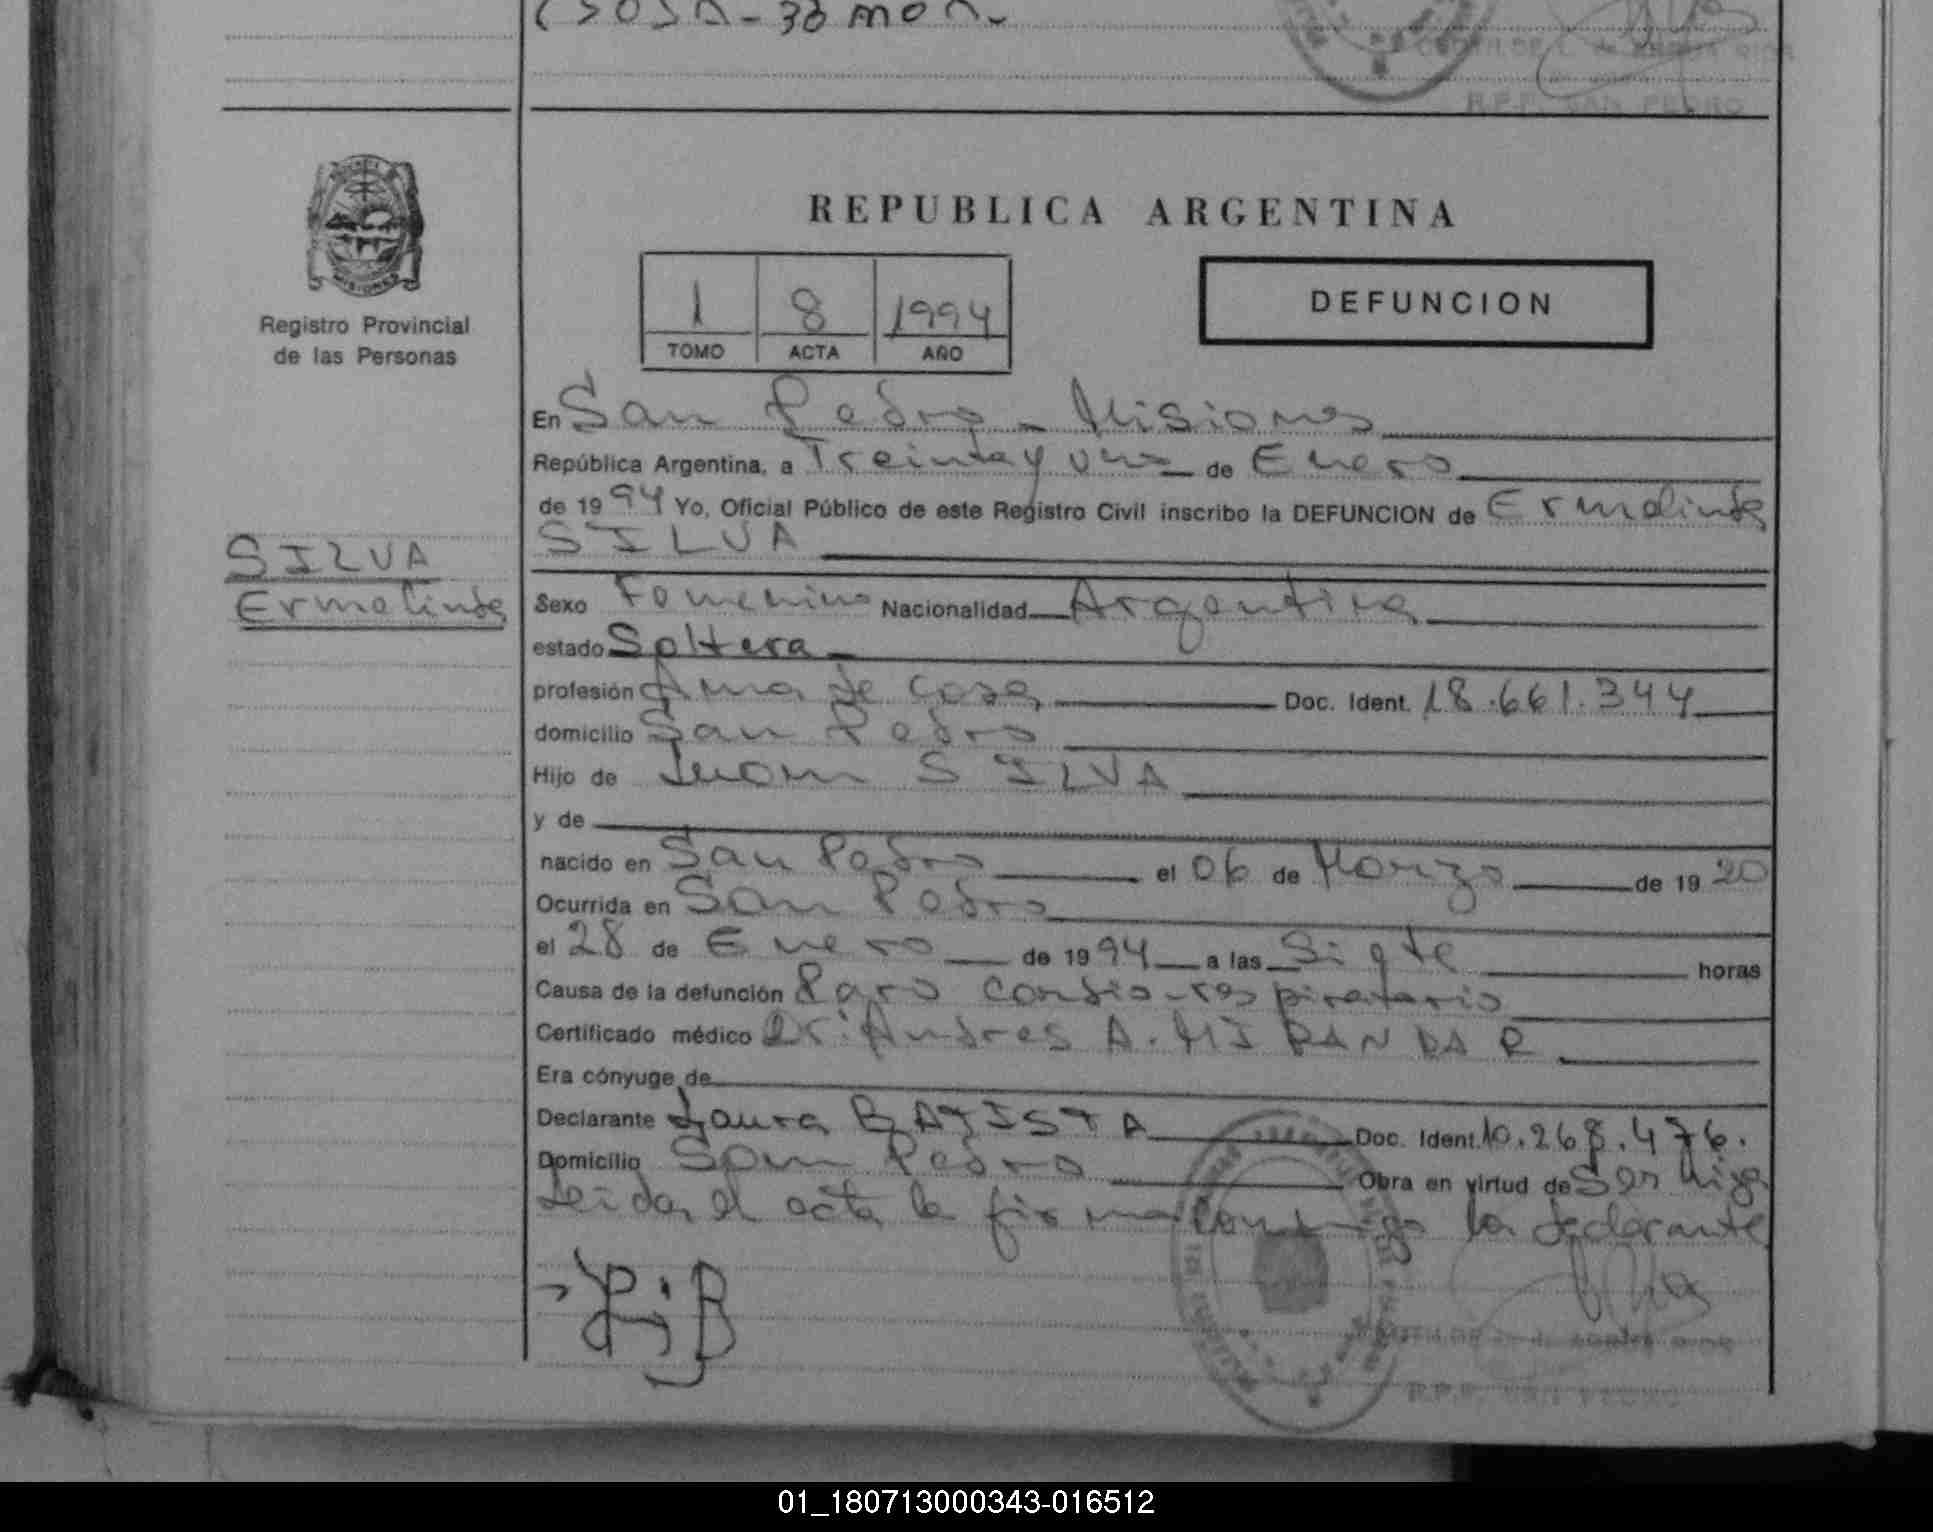 REPUBLICA ARGENTINA
Registro Provincial
de las Personas
MISIONES
1 8 1994
TOMO ACTA AÑO
DEFUNCION
En San Pedro - Misiones
República Argentina, a Treinta y uno de Enero
de 1994 Yo, Oficial Público de este Registro Civil inscribo la DEFUNCION de Ermelinda
SILVA
SILVA
Ermelinda
Sexo Femenino Nacionalidad Argentina
estado Soltera
profesión Ama de casa Doc. Ident. 18.661.344
domicilio San Pedro
Hijo de Juan SILVA
y de
nacido en San Pedro el 06 de Marzo de 1920
Ocurrida en San Pedro
el 28 de Enero de 1994 a las Siete horas
Causa de la defunción Paro cardio-respiratorio
Certificado médico Dr. Andres A. MIRANDA R
Era cónyuge de
Declarante Laura BATISTA Doc. Ident. 10.268.476.
Domicilio San Pedro Obra en virtud de Ser hija
Leida el acta la firma conmigo la declarante
L. B
R.P.P. SAN PEDRO
01_180713000343-016512